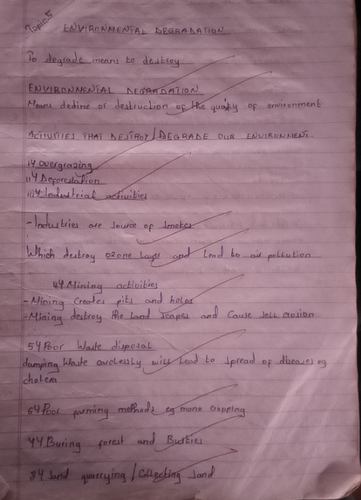 Topic 5
ENVIRONMENTAL DEGRADATION
To degrade means to destroy
ENVIRONMENTAL DEGRADATION
Means decline or destruction of the quality of environment
ACTIVITIES THAT DESTROY/DEGRADE OUR ENVIRONMENT.
overgrazing
Deforestation
Industrial activities
- Industries are source of smokes
Which destroy ozone layer and lead to air pollution
4 Mining activities
- Mining creates pits and holes
- Mining destroy the land scapes and cause soil erosion
5 Poor waste disposal
damping waste carelessly will lead to spread of diseases eg
cholera
6 Poor farming methods eg mono cropping
Buring forest and Bushes
8 Sand quarrying / Collecting sand